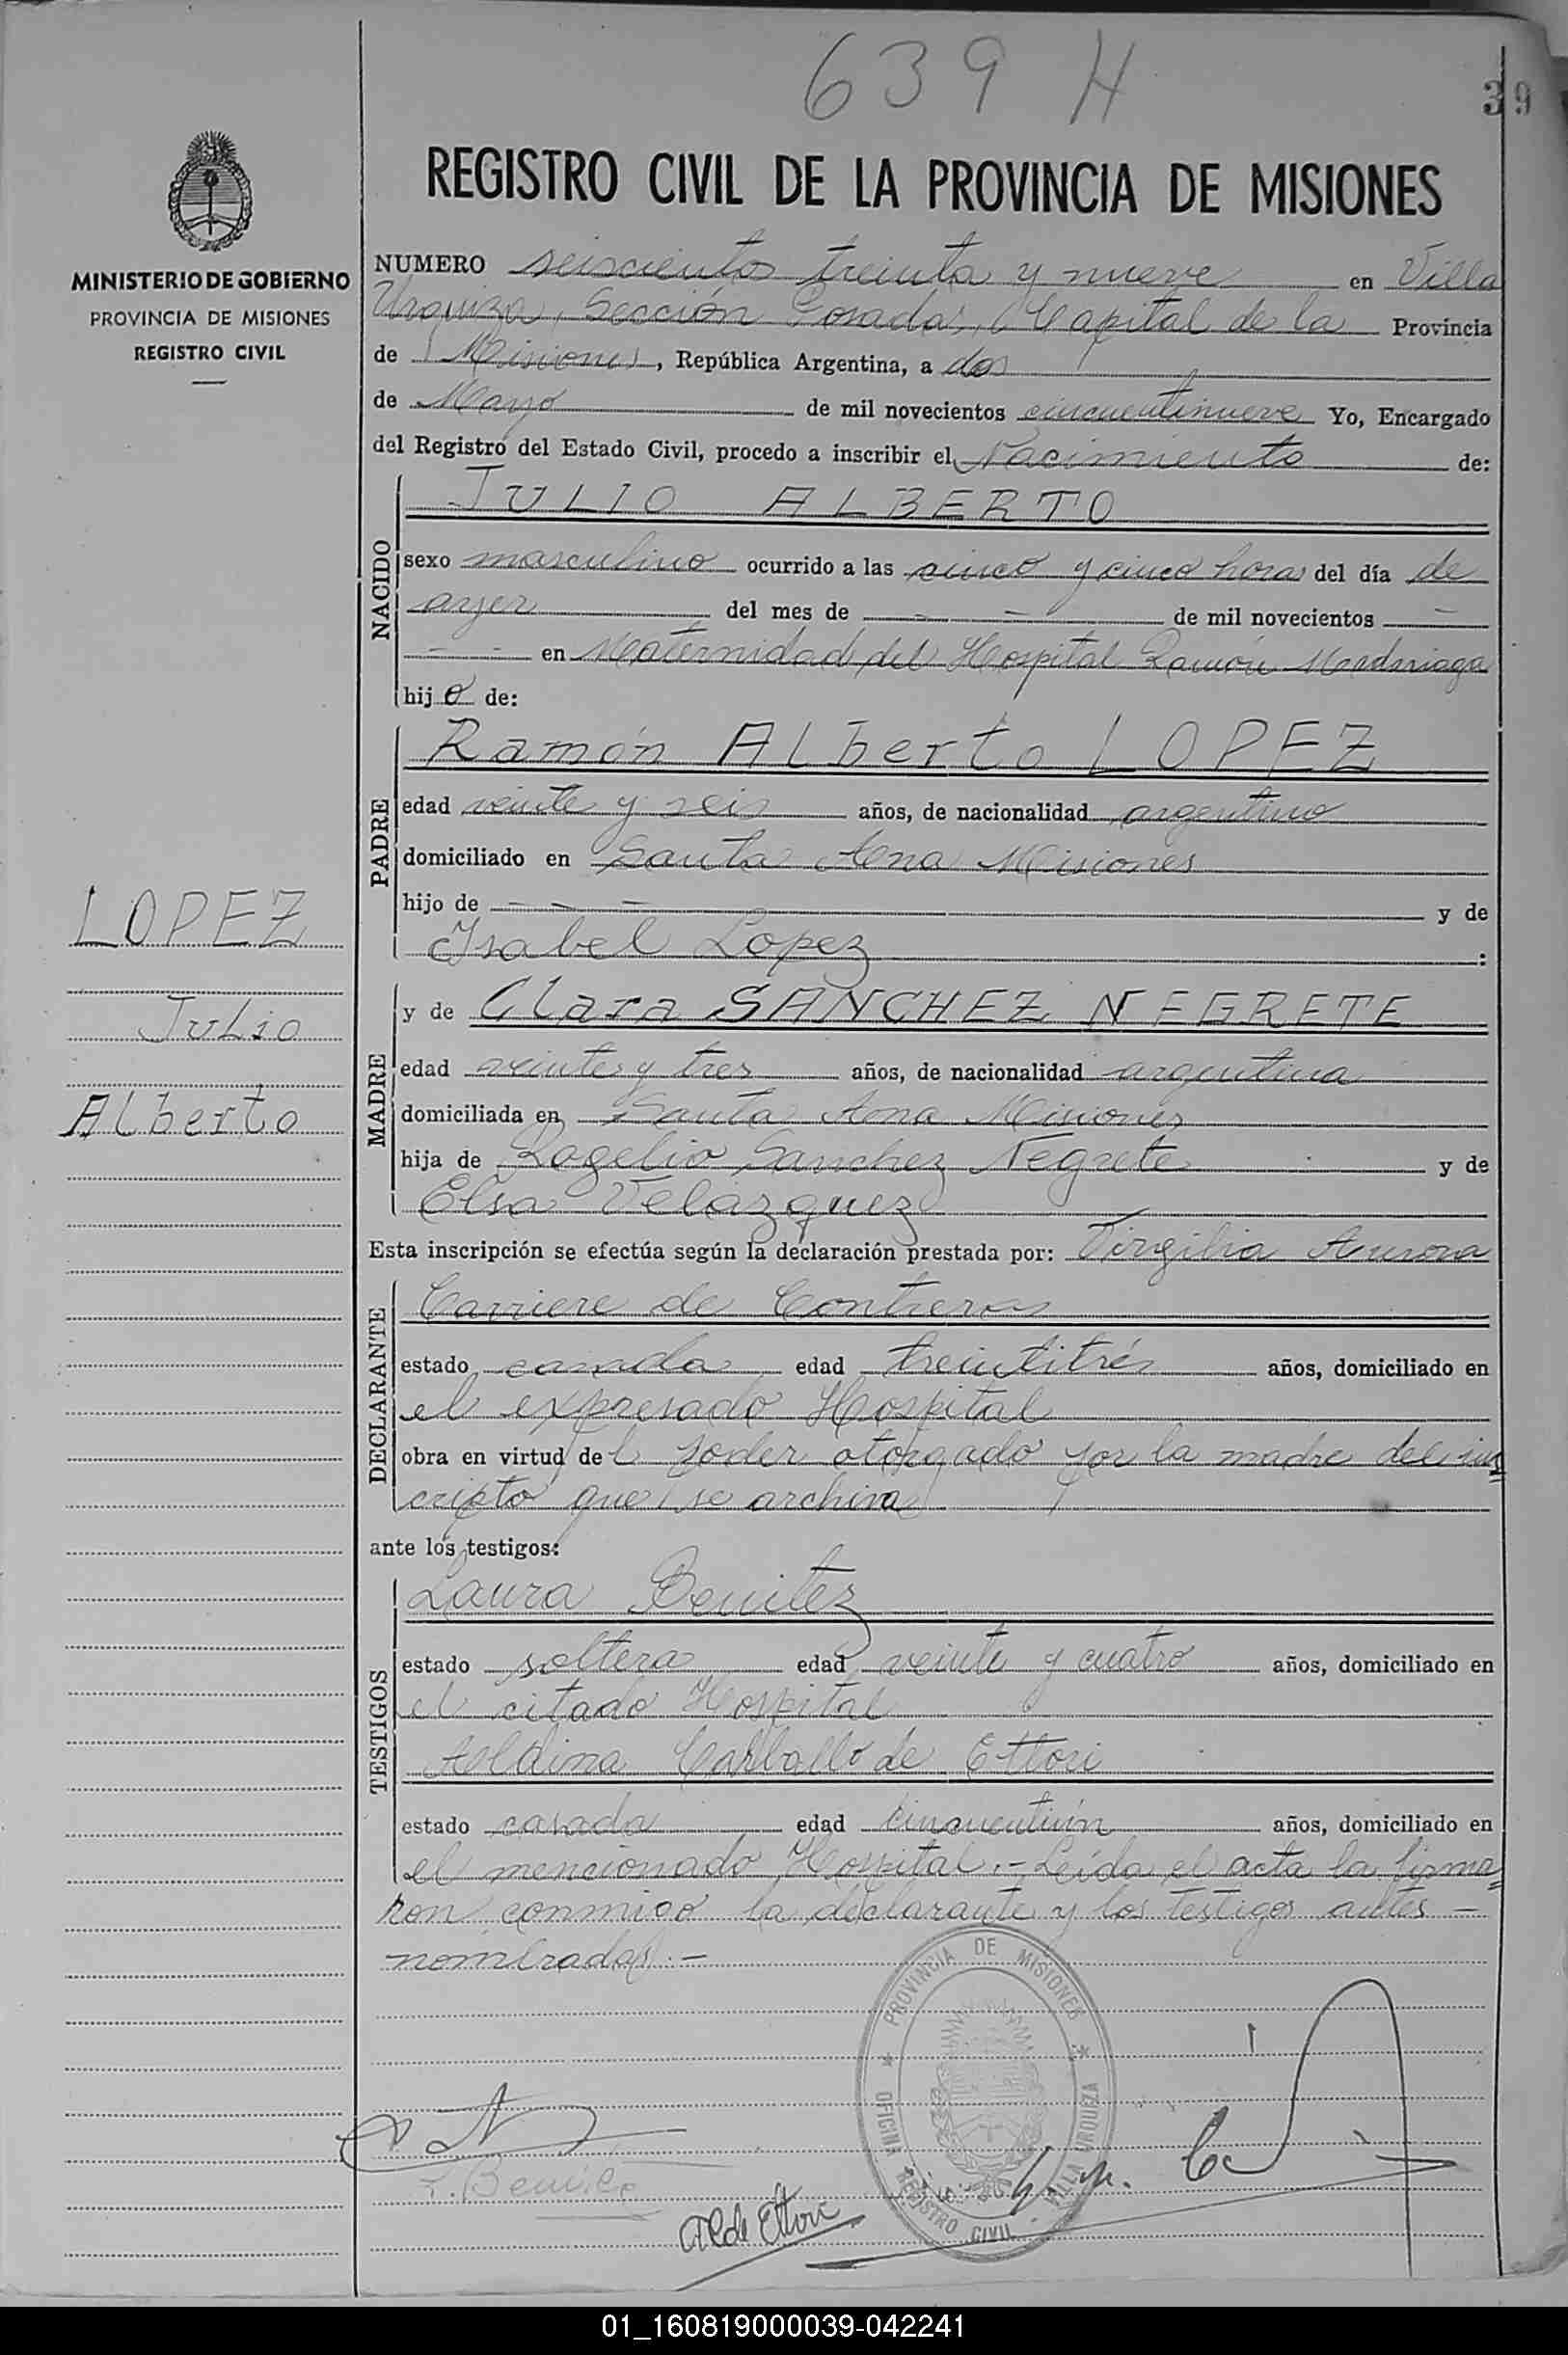 639 H
39
REGISTRO CIVIL DE LA PROVINCIA DE MISIONES
MINISTERIO DE GOBIERNO
PROVINCIA DE MISIONES
REGISTRO CIVIL
NUMERO seiscientos treinta y nueve en Villa
Urquiza, Sección Posadas, Capital de la Provincia
de Misiones, República Argentina, a dos
de Mayo de mil novecientos cincuentinueve Yo, Encargado
del Registro del Estado Civil, procedo a inscribir el Nacimiento de:
NACIDO
JULIO ALBERTO
sexo masculino ocurrido a las cinco y cinco horas del día de
ayer del mes de - - de mil novecientos -
- - en Maternidad del Hospital Ramón Madariaga
hijo de:
PADRE
Ramón Alberto LOPEZ
edad veinte y seis años, de nacionalidad argentino
domiciliado en Santa Ana Misiones
hijo de - - - y de
Isabel Lopez :
LOPEZ
Julio
Alberto
MADRE
y de Clara SANCHEZ NEGRETE
edad veinte y tres años, de nacionalidad argentina
domiciliada en Santa Ana Misiones
hija de Rogelio Sanchez Negrete y de
Elsa Velázquez
Esta inscripción se efectúa según la declaración prestada por: Virgilia Aurora
DECLARANTE
Carriere de Contreras
estado casada edad treintitrés años, domiciliado en
el expresado Hospital
obra en virtud del poder otorgado por la madre del ins
cripto que se archiva
ante los testigos:
TESTIGOS
Laura Benitez
estado soltera edad veinte y cuatro años, domiciliado en
el citado Hospital
Aldina Carballo de Ettori
estado casada edad cincuentiún años, domiciliado en
el mencionado Hospital.- Leída el acta la firma=
ron conmigo la declarante y los testigos antes -
nombrados.-
PROVINCIA DE MISIONES
OFICINA REGISTRO CIVIL
VILLA URQUIZA
L. Benitez
A C de Ettori
01_160819000039-042241